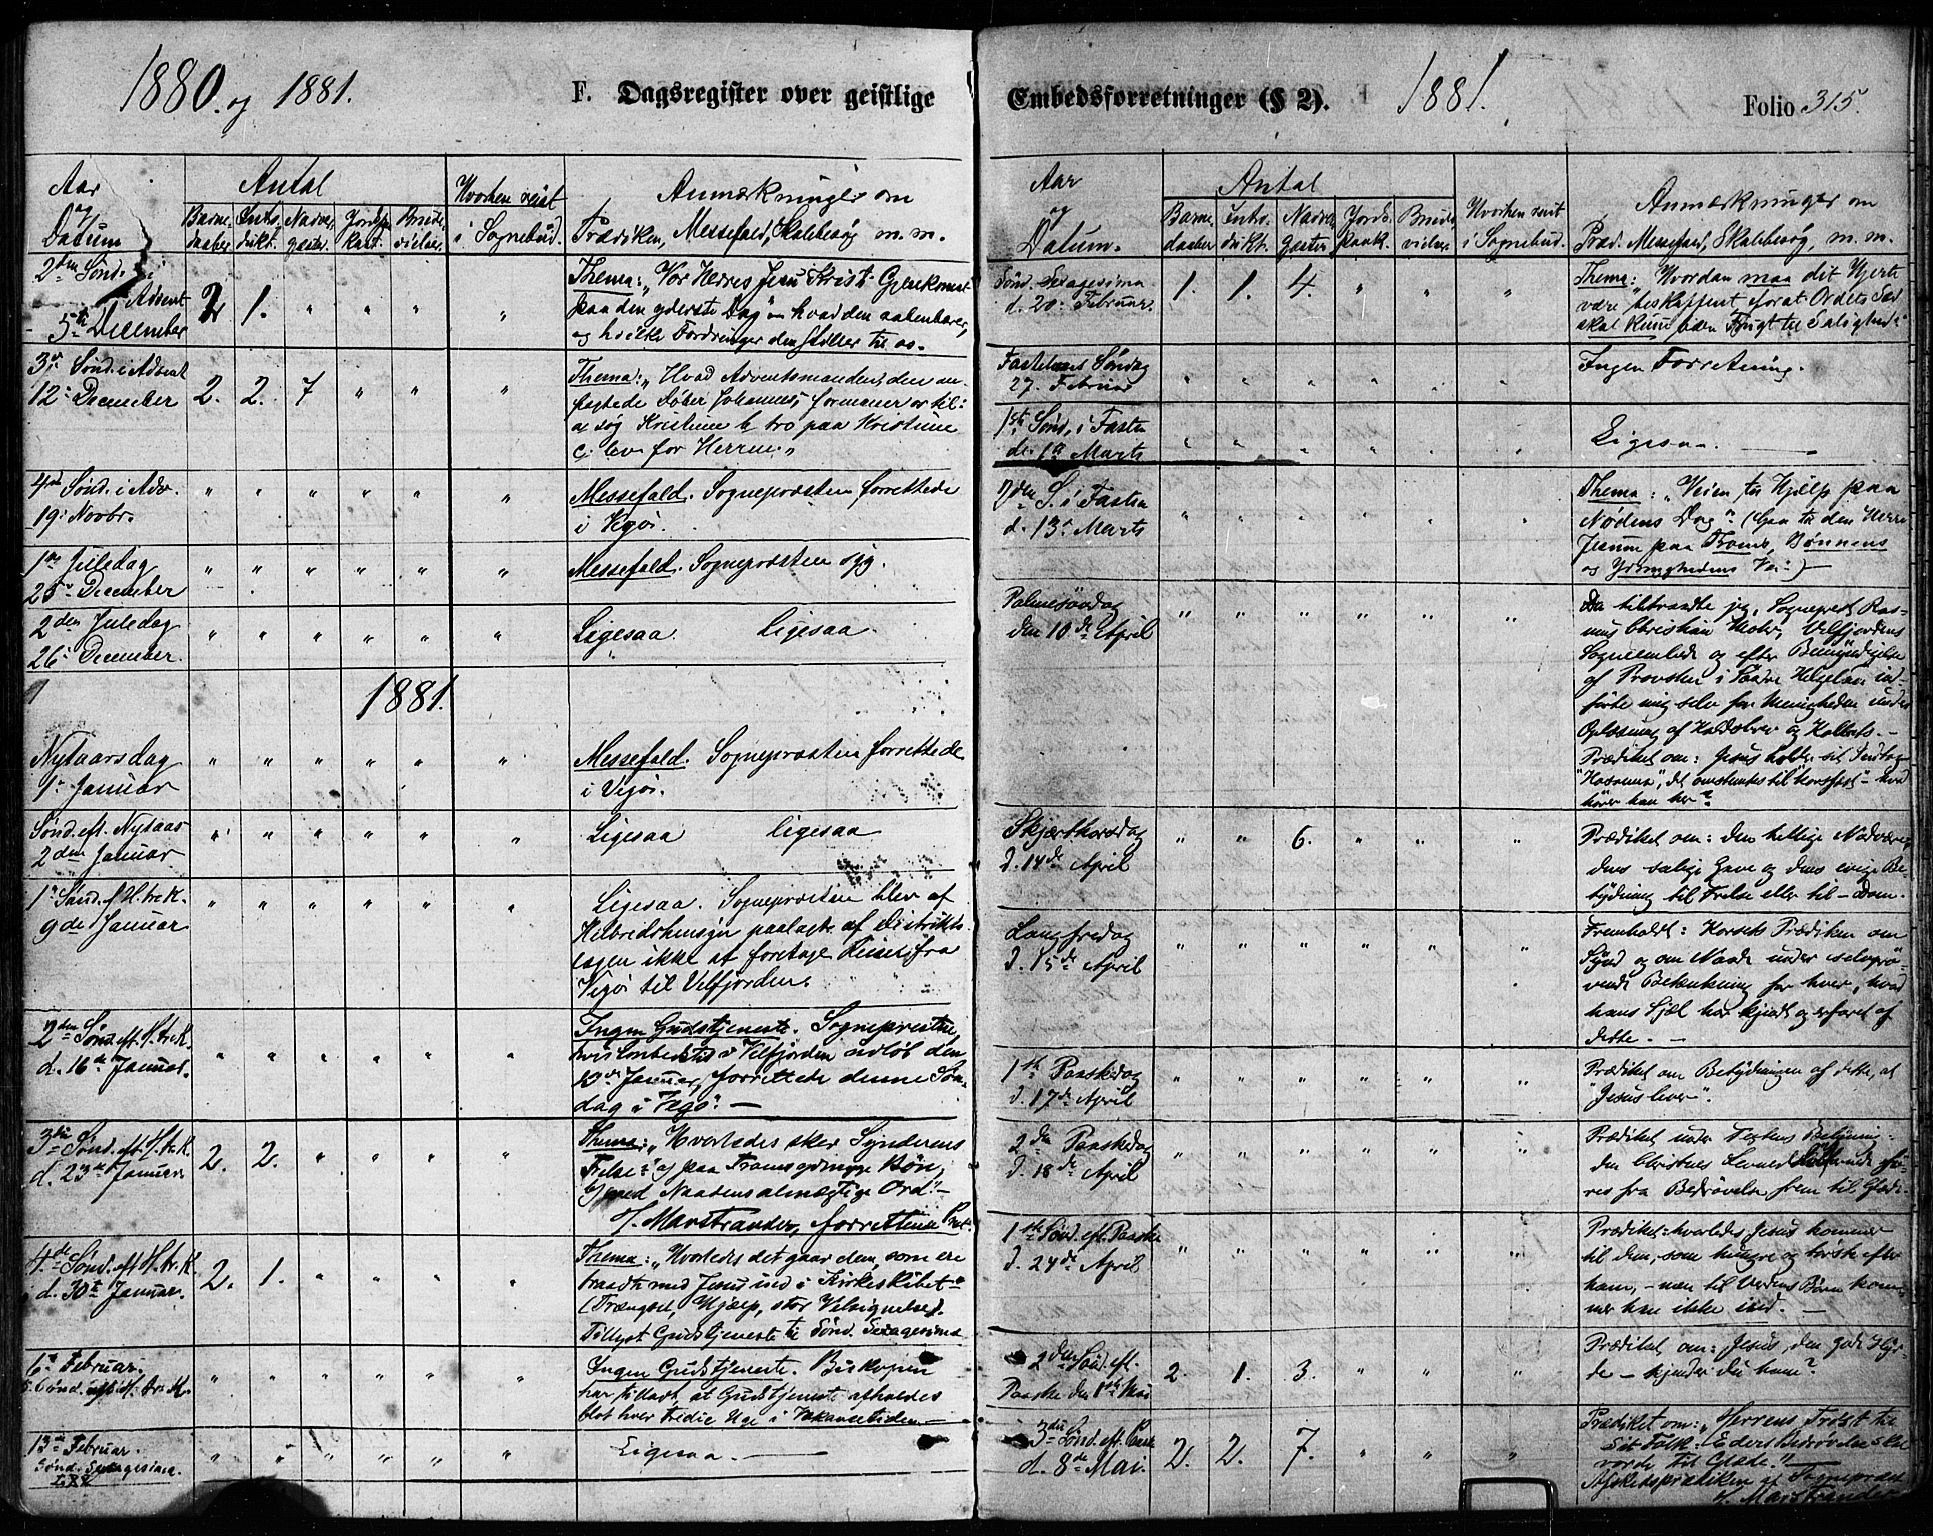 1880. og 1881.
F. Dagsregister over geistlige
Aar
Datum
Antal
Barne
daaber
Intro
dukt.
Nadver
gester
Jordsp
kast.
Brude
vielser
Hvorhen reist
i Sognebud.
Anmærkninger om
Prædiken, Messefald, Skolebesøg m. m.
2den Sønd. i
Advent
5te December
2 1. " " " "
Thema: „Vor Herres Jesu Kristi Gjenkomst
paa den yderste Dag" hvad den aabenbarer,
og hvilke Fordringer den stiller til os.
3die Sønd. i Advent
12te December
2. 2. 7 " " "
Thema: „Hvad Adventsmanden, den
Døber Johannes, formaner os til:
a, søg Kristum b, tro paa Kristum
c, lev for Herren."
4de Sønd. i Adv.
19. Novbr.
" " " " " "
Messefald. Sognepræsten forrettede
i Vegø.
1ste Juledag
25de December
" " " " " "
Messefald. Sognepræsten syg.
2den Juledag
26. December.
" " " " " "
Ligesaa. Ligesaa.
1881.
Nytaarsdag
1. Januar
" " " " " "
Messefald. Sognepræsten forrettede
i Vegø.
Sønd. eft. Nytaar
2den Januar
" " " " " "
Ligesaa ligesaa
1. Sønd. e. H. tre K.
9de Januar
" " " " " "
Ligesaa. Sognepræsten blev af
Helbredshensyn paalagt af Distrikts-
lægen ikke at foretage Reisen fra
Vegø til Velfjorden.
2den Sønd. eft. H. tre K.
d. 16de Januar.
" " " " " "
Ingen Gudstjeneste. Sognepresten,
hvis Embedstid i Velfjorden udløb den
Januar, forrettede denne Søn-
dag i Vegø. —
3die Sønd. eft. H. tr. K.
d. 23de Januar.
2. 2. " " " "
Thema: „Hvorledes sker Synderens
Frelse": a, paa Troens ydmyge Bøn,
b, ved Naadens almægtige Ord." —
H. Marstrander, forrettende Prest.
4de Sønd. eft. H. tr. K.
d. 30te Januar.
2. 1. " " " "
Thema: „Hvorledes det gaar dem, som ere
traadte med Jesus ind i Kirkeskibet"
(Trængsel, Hjælp, stor Velsignelse).
Tillyst Gudstjeneste til Sønd. Sexagesima
6te Februar.
5. Sønd. eft. H. tre K.
" " " " " "
Ingen Gudstjeneste. Biskopen
har tilladt, at Gudstjeneste afholdes
blot hver tredie Uge i Vakancetiden —
13de Februar.
Sønd. Septuagesima.
" " " " " "
Ligesaa —
Embedsforretninger (§ 2). 1881. Folio 315.
Aar
og
Datum.
Antal
Barne
daaber
Intro
dukt.
Nadver
gester
Jords
paak.
Brude
vielser
Hvorhen reist
i Sognebud.
Anmærkninger om
Præd. Messefald, Skolebesøg, m. m.
Sønd. Sexagesima
d. 20. Februar.
1. 1. 4. " " "
Thema: „Hvordan maa dit Hjerte
være beskaffent forat Ordets Sæd
skal kunne bære Frugt til Salighed."
Fastelavns Søndag
27. Februar
" " " " " "
Ingen Forretning.
1ste Sønd. i Fasten
de. Marts
" " " " " "
Ligesaa.
2den S. i Fasten
d. 13. Marts
" " " " " "
Thema: „Veien til Hjælp paa
Nødens Dag" (Gaa til den Herre
Jesum paa Troens, Bønnens
og Ydmyghedens Vei) —
Palmesøndag
den 10de April
" " " " " "
Da tiltraadte jeg, Sogneprest Ras-
mus Christian Mohr, Velfjordens
Sogneembede og efter Bemyndigelse
af Provsten i Søndre Helgeland ind-
førte mig selv for Menigheden under
Oplæsning af Kaldsbrev og Kollats. —
Prædiket om: Jesus holder sit Indtog
"Hosianna", det omskiftes til "korsfæst" — hvad
hører han her?
Skjærthorsdag
d. 14de April
" " 6. " " "
Prædiket om: den hellige Nadveres
dens salige Gave og dens evige Be-
tydning til Frelse eller til — Dom.
Langfredag
d. 15de April
" " " " " "
Fremholdt: Korsets Prædiken om
Synd og om Naade under selvprø-
vende Betænkning for hver, hvad
hans Sjæl har kjendt og erfaret af
dette. —
1ste Paaskedag
d. 17de April
" " " " " "
Prædiket om Betydningen af dette, at
"Jesus lever".
2den Paaskedag
d. 18de April
" " " " " "
Prædiket under Textens Belysning:
den Christnes Levned fø-
res fra Bedrøvelse frem til Glæde.
1ste Sønd. eft. Paaske
d. 24de April
" " " " " "
Prædiket: hvorledes Jesus kommer
til dem, som hungre og tørste efter
ham, — men til Verdens Børn kom-
mer han ikke ind. —
2den Sønd. eft.
Paaske den 1ste Mai
2. 1. 3. " " "
Prædiket om: Jesus, den gode Hyr-
de — kjender du ham?
3die Sønd. eft. Paaske
d. 8de Mai.
2. 2. 7. " " "
Prædiket om: „Herrens Trøst til
sit Folk: Eders Bedrøvelse skal
vorde til Glæde." —
Afskedspræken af Sogneprest
H. Marstrander